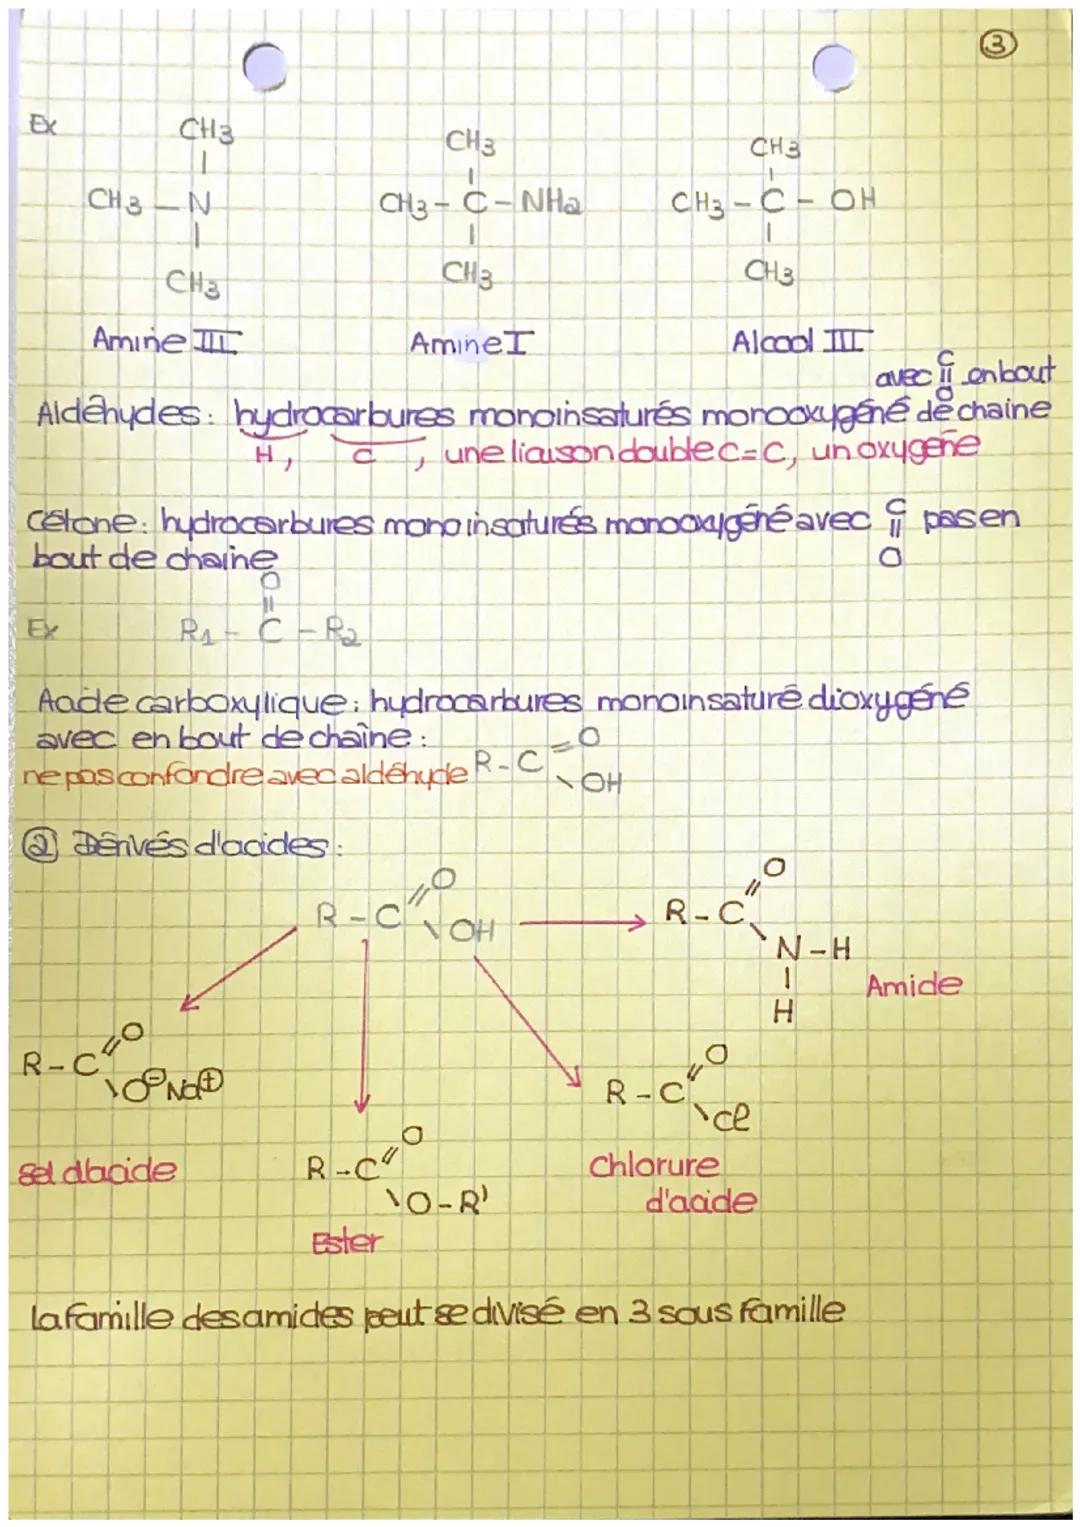 ③
Ex
CH3 CH3 CH3
| | |
CH3 – N CH3 – C – NH2 CH3 – C – OH
| | |
CH3 CH3 CH3
Amine III Amine I Alcool III
avec C=O en bout
Aldéhydes : hydrocarbures monoinsaturés monooxygéné de chaine
H, C, une liaison double C=C, un oxygène
Cétone : hydrocarbures monoinsaturés monooxygéné avec C=O pas en
bout de chaine
O
||
Ex R1 – C – R2
Acide carboxylique : hydrocarbures monoinsaturé dioxygéné
avec en bout de chaîne :
=O
ne pas confondre avec aldéhyde R – C
\ OH
② Dérivés d'acides :
R – C =O \ OH
R – C =O \ N – H
|
H
Amide
R – C =O \ O⊖ Na⊕
R – C =O \ Cl
sel d'acide
R – C =O \ O – R'
Chlorure
d'acide
Ester
la famille des amides peut se divisé en 3 sous famille